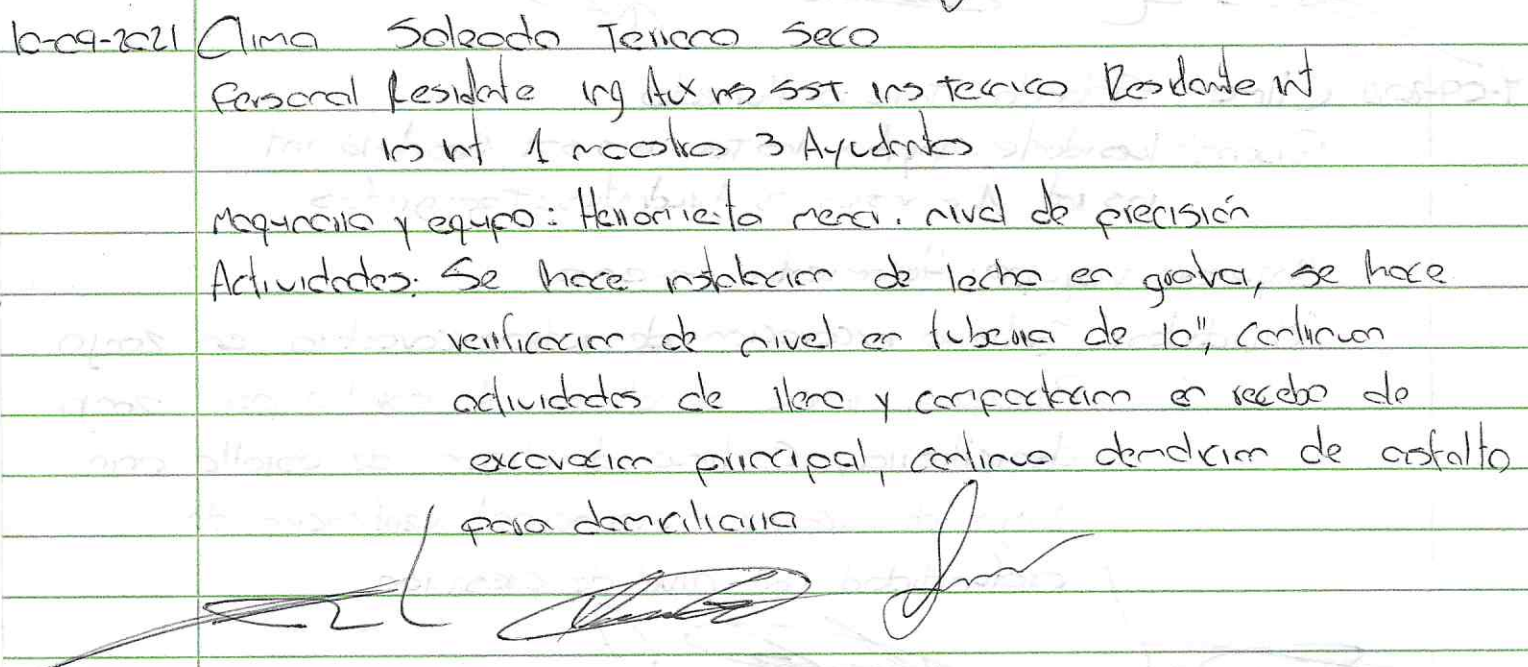 10-09-2021 Clima Soleado Terreno Seco
Personal Residente ing Aux ins SST. ins tecnico Residente int
ins int 1 maestro 3 Ayudantes
Maquinaria y equipo: Herramienta menor. nivel de precisión
Actividades: Se hace instalacion de lecho en grava, se hace
verificacion de nivel en tuberia de 10", continuan
actividades de lleno y compactacion en recebo de
excavacion principal, continua demolicion de asfalto
para domiciliaria